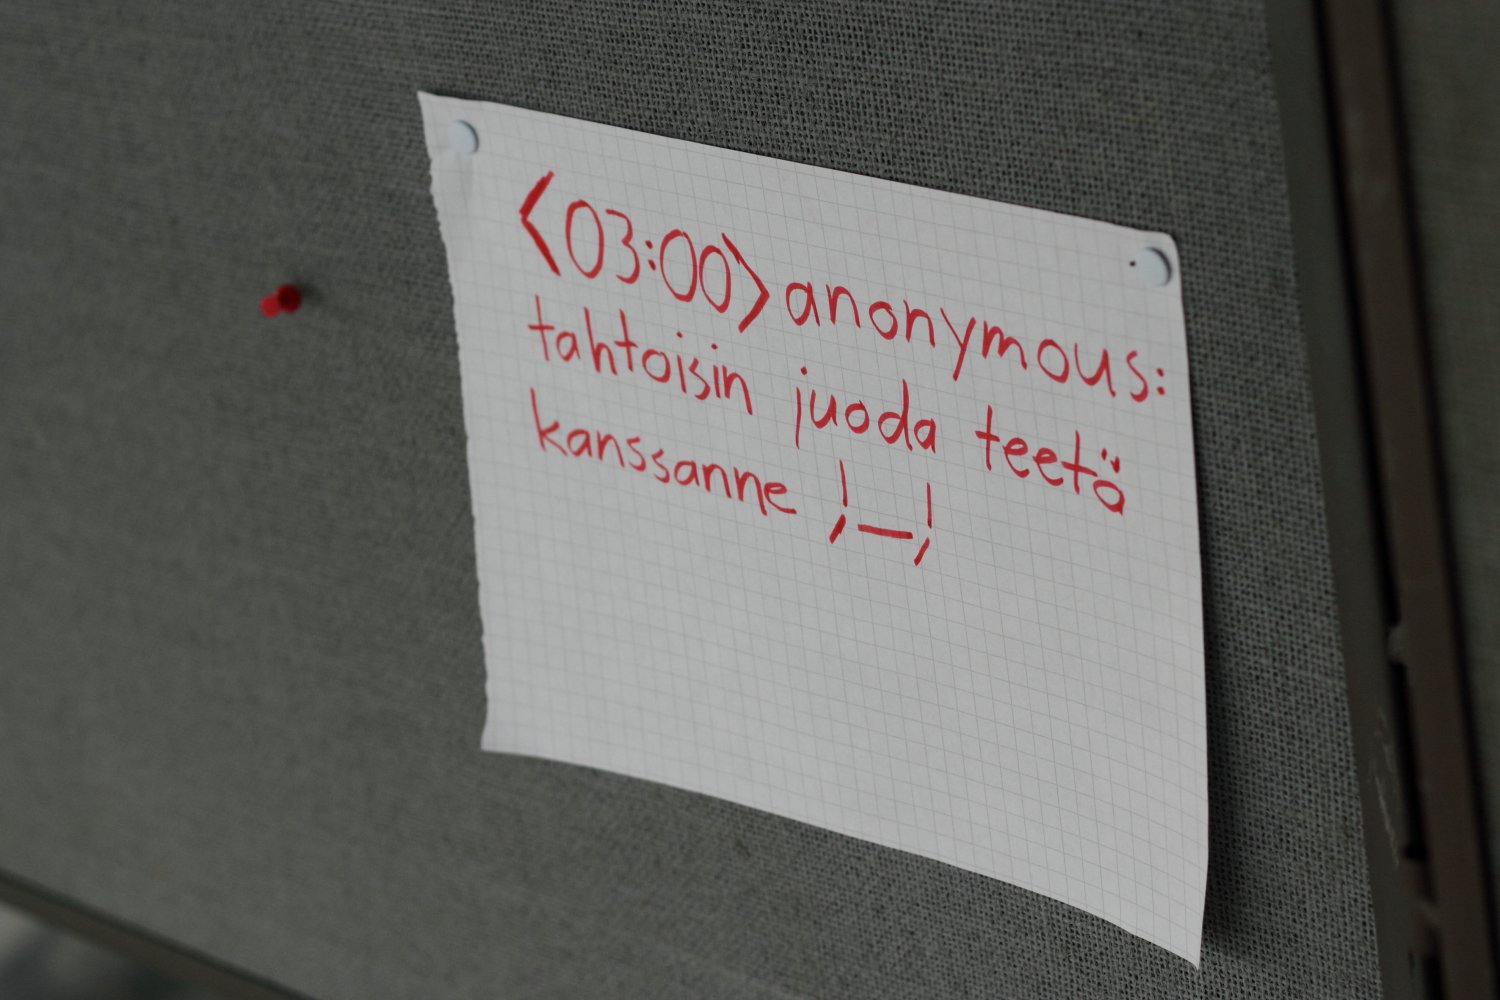 <03:00> anonymous:
tahtoisin juoda teetä
kanssanne ;_;